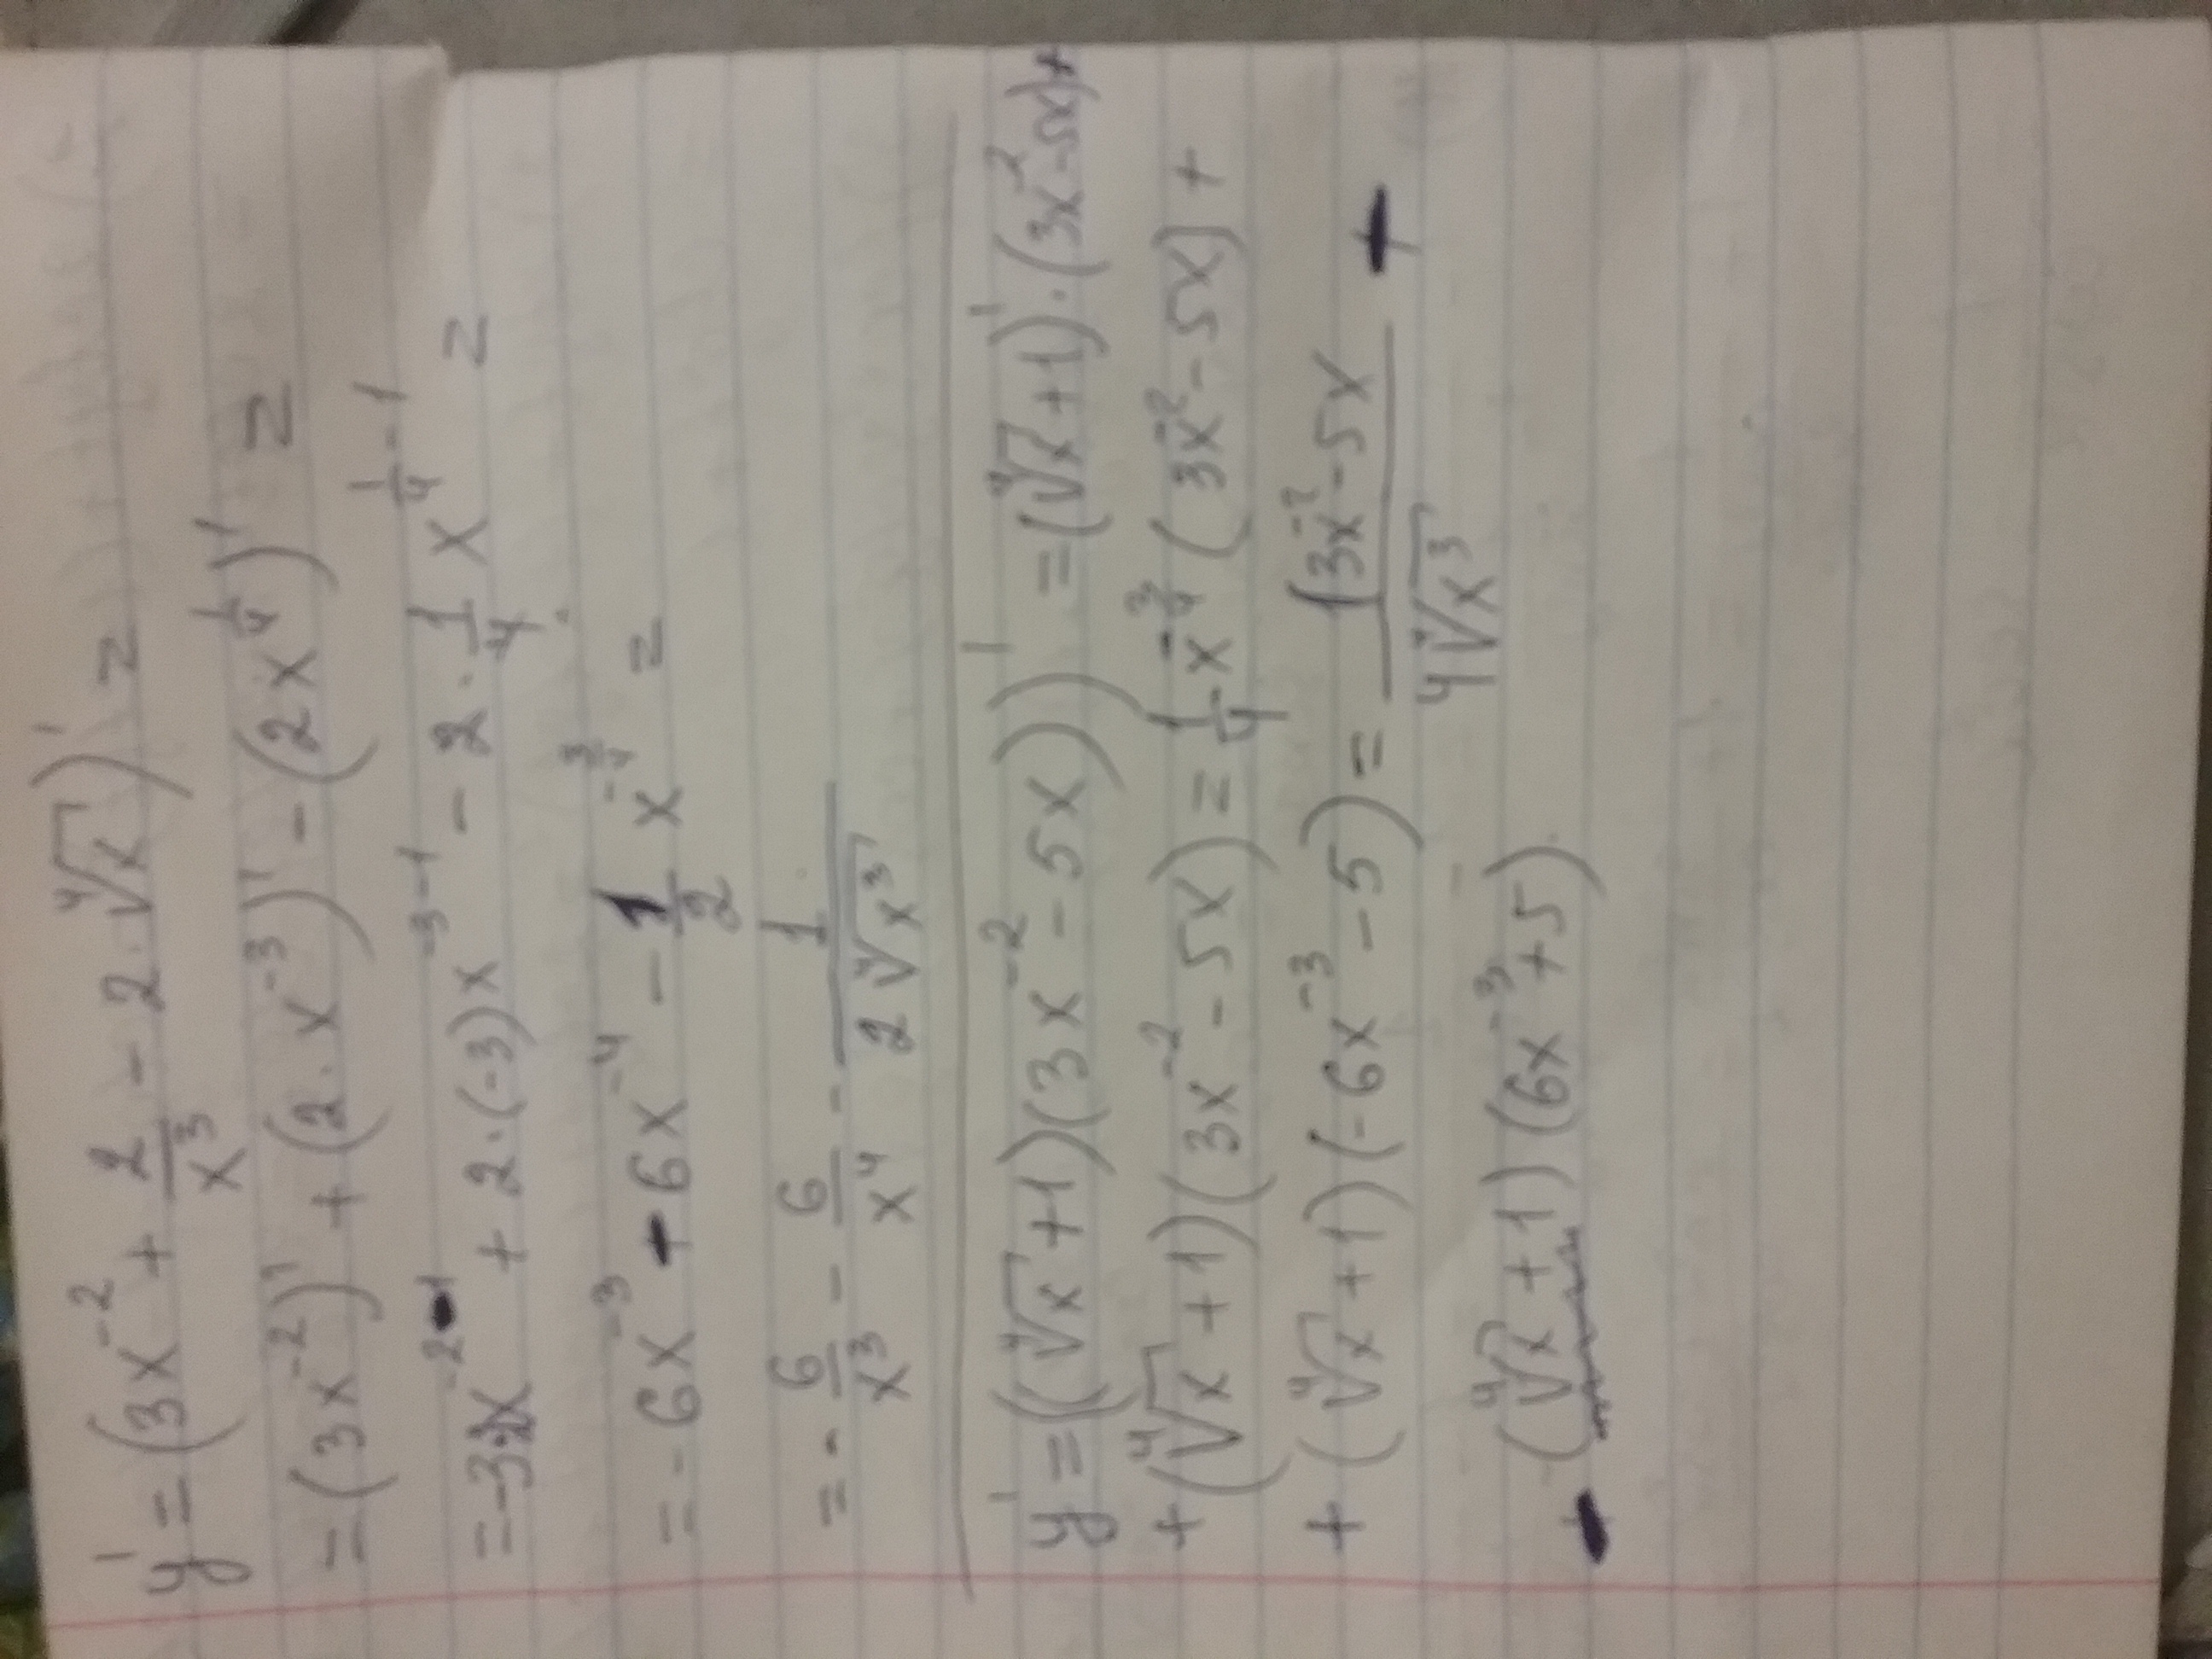 y' = (3x⁻² + 2/x³ - 2·⁴√x)' =
= (3x⁻²)' + (2·x⁻³)' - (2x^(1/4))' =
= -3·2x^(-2-1) + 2·(-3)x^(-3-1) - 2·1/4 x^(1/4-1) =
= -6x⁻³ - 6x⁻⁴ - 1/2 x^(-3/4) =
= - 6/x³ - 6/x⁴ - 1/(2⁴√x³)
y' = ((⁴√x+1)(3x⁻² - 5x))' = (⁴√x+1)'·(3x⁻²-5x)+
+ (⁴√x+1)(3x⁻² - 5x) = 1/4 x^(-3/4) (3x⁻² - 5x) +
+ (⁴√x+1)(-6x⁻³ - 5) = (3x⁻²-5x)/(4⁴√x³) -
- (⁴√x+1)(6x⁻³+5)